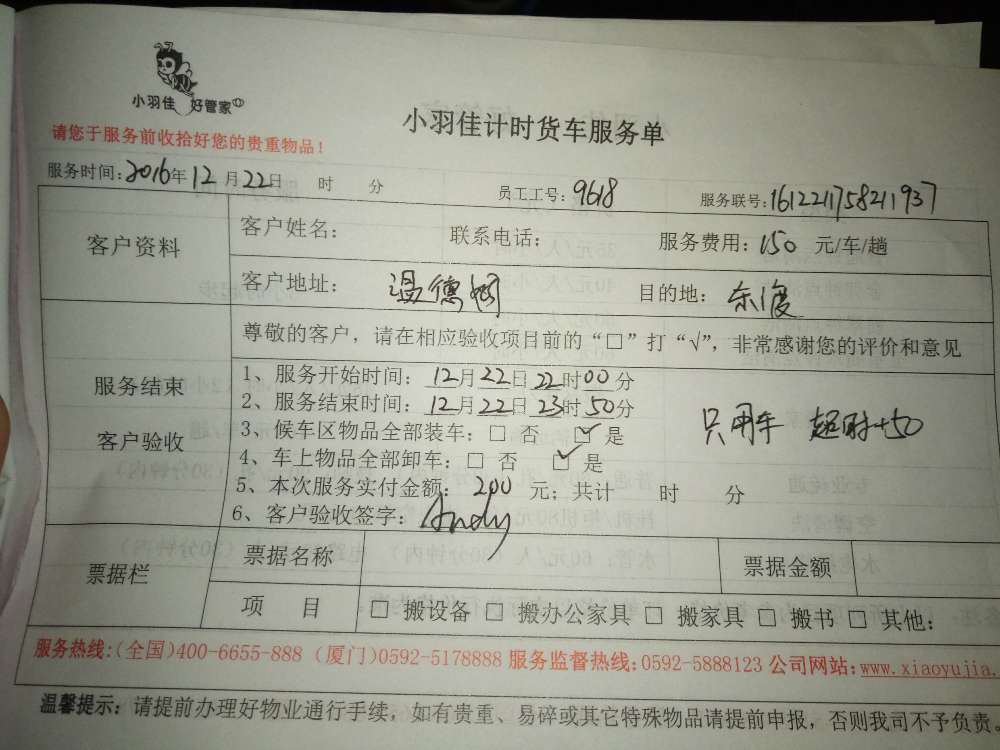 小羽佳 好管家
小羽佳计时货车服务单
请您于服务前收拾好您的贵重物品！
服务时间：2016年12月22日 时 分 员工工号：9618 服务联号：161221758211937
客户资料 客户姓名： 联系电话： 服务费用：150 元/车/趟
客户地址：温德姆 目的地：东渡
尊敬的客户，请在相应验收项目前的“□”打“√”，非常感谢您的评价和意见
服务结束
客户验收
1、服务开始时间：12月22日22时00分
2、服务结束时间：12月22日23时50分
3、候车区物品全部装车：□ 否 ☑ 是
只用车 超时+50
4、车上物品全部卸车：□ 否 ☑ 是
5、本次服务实付金额：200 元；共计 时 分
6、客户验收签字：Andy
票据栏 票据名称 票据金额
项 目 □ 搬设备 □ 搬办公家具 □ 搬家具 □ 搬书 □ 其他：
服务热线：(全国)400-6655-888 (厦门)0592-5178888 服务监督热线：0592-5888123 公司网站：www.xiaoyujia.
温馨提示：请提前办理好物业通行手续，如有贵重、易碎或其它特殊物品请提前申报，否则我司不予负责。